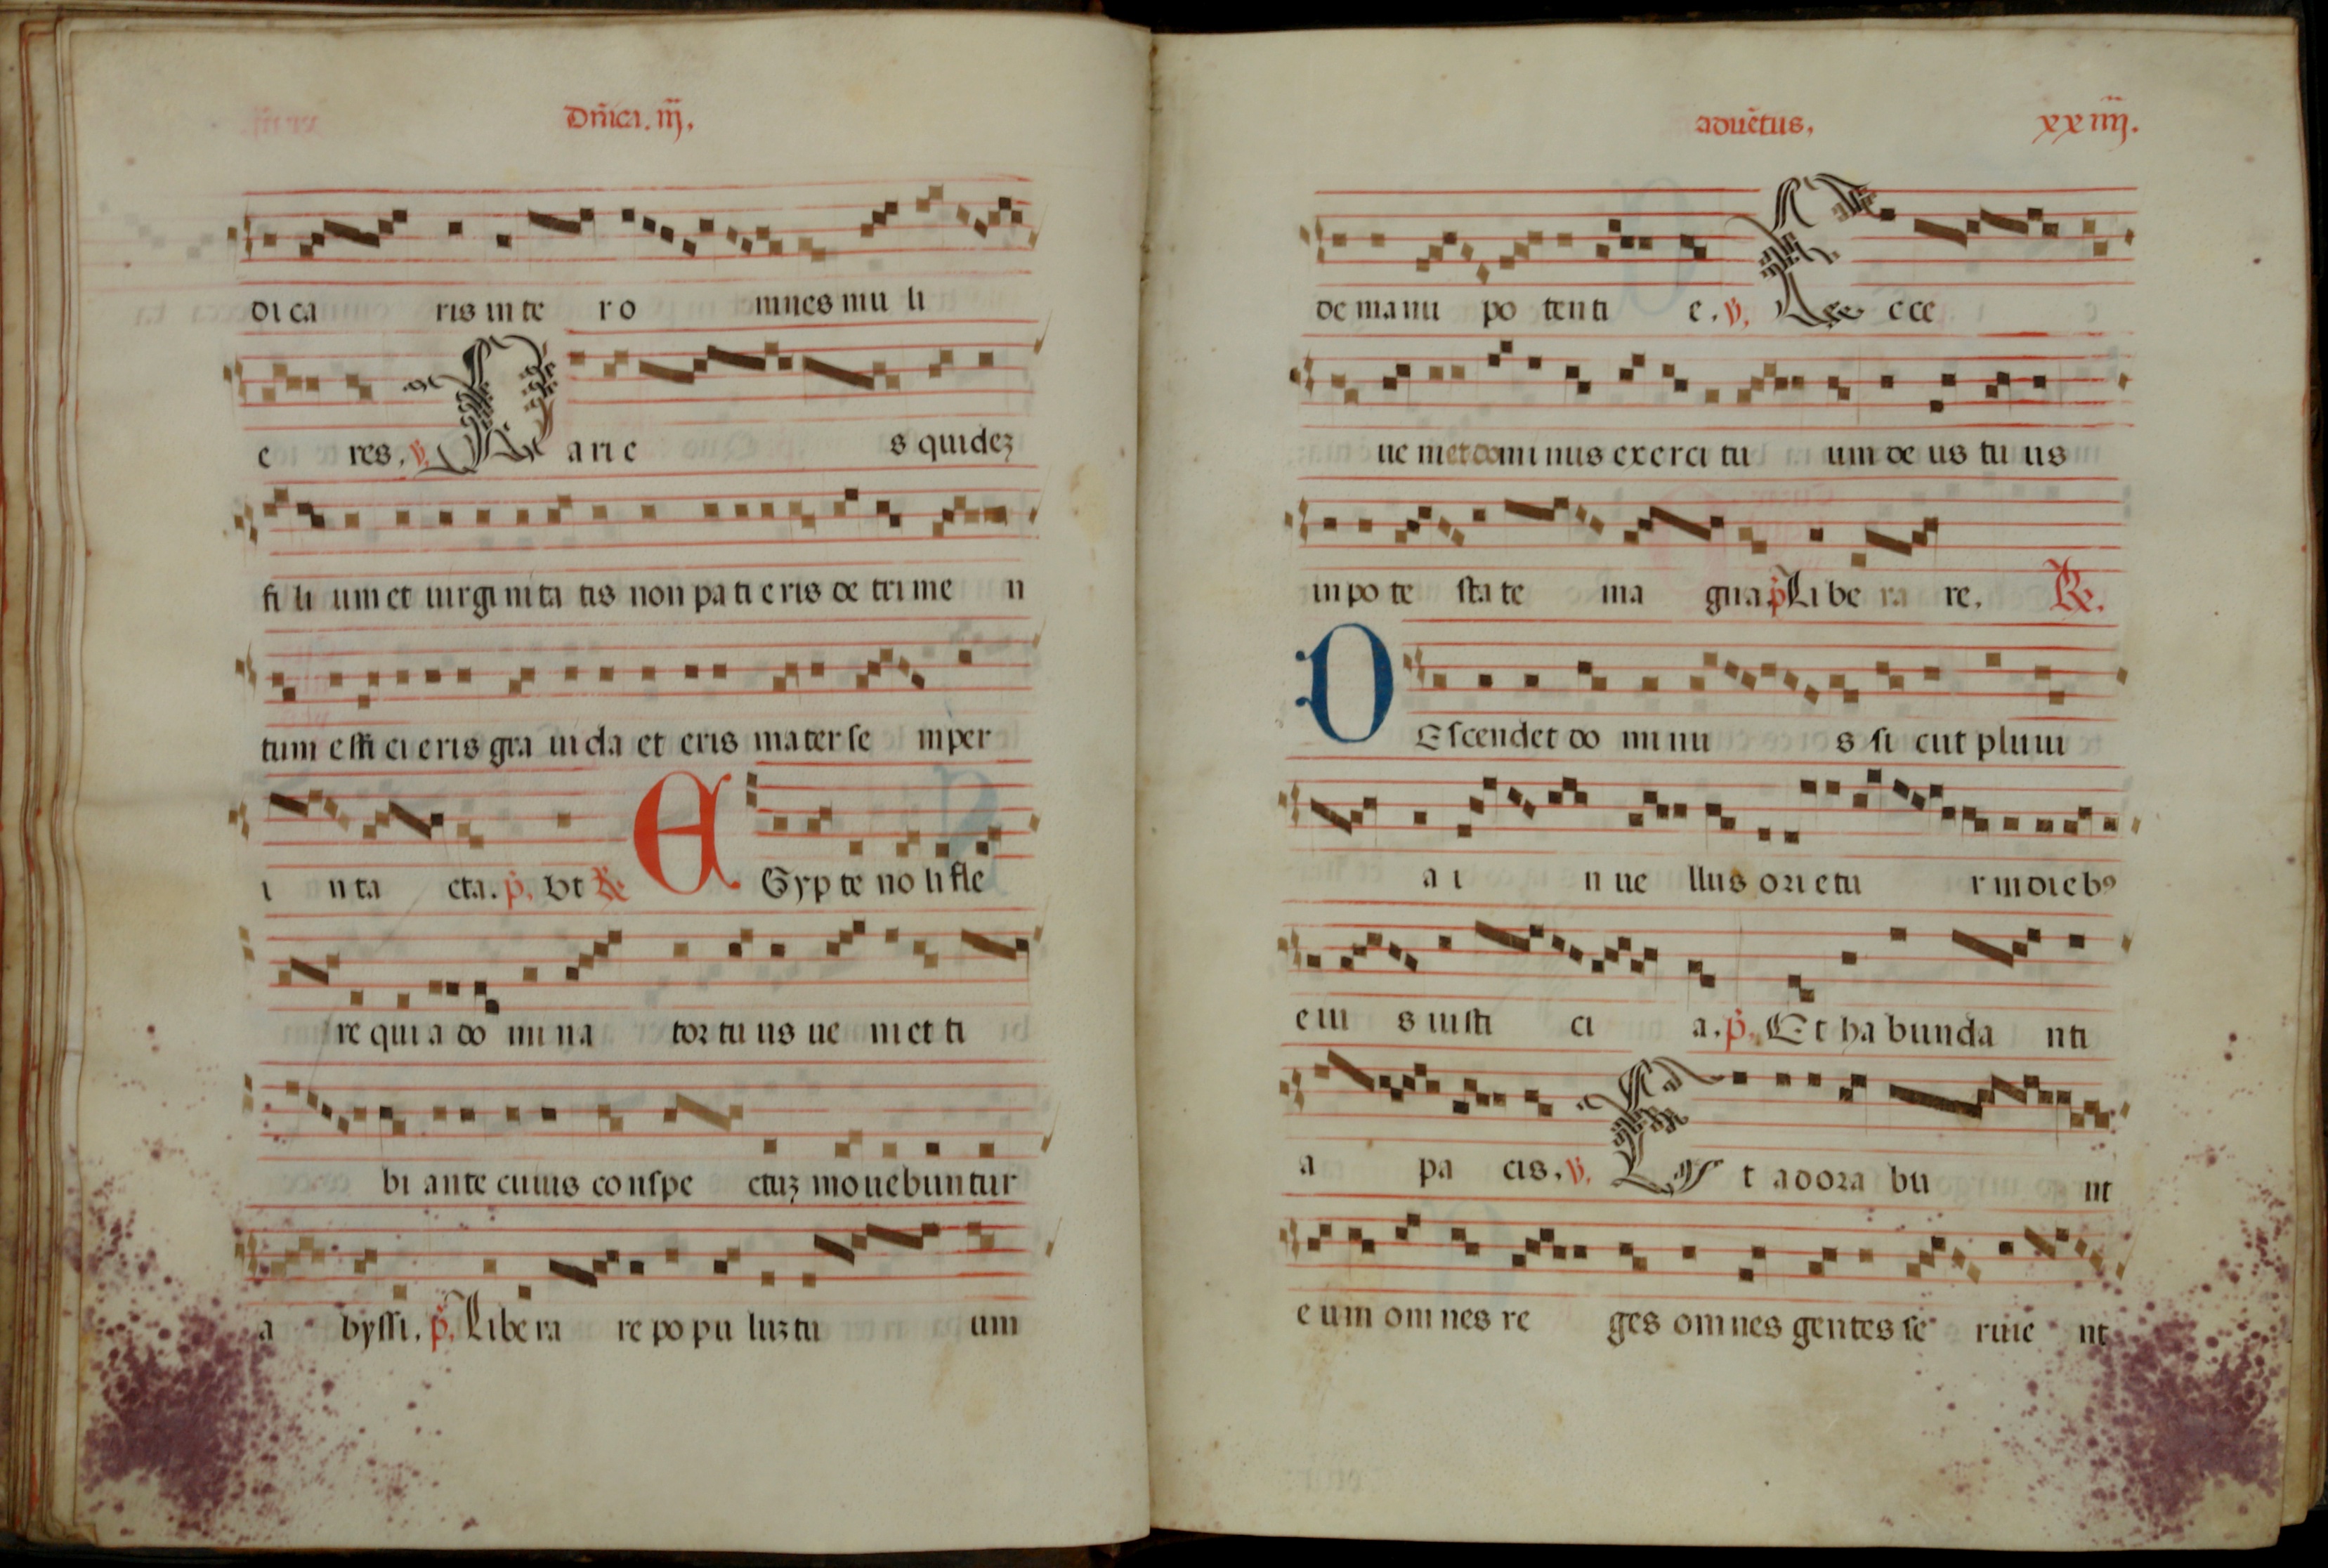 Dñica. iij,
di ca ris in te r o mnes mu li
e res. v. P ari e s quidez
fi li um et uirgi ni ta tis non pa ti e ris de tri me n
tum effi ci eris gra ui da et eris ma ter se mper
i n ta cta. p. Ut R. E Gyp te no li fle
re qui a do mi na tor tu us ue ni et ti
bi ante cuius conspe ctuz mouebuntur
a byssi. p. Libe ra re po pu luz tu um
aduẽtus,
xxiiij.
de ma nu po ten ti e. v. E c ce
ue niet domi nus exerci tu um de us tu us
in po te sta te ma gna. p. Li be ra re. R.
D Escendet do mi nu s si cut pluui
a i n ue llus ori e tu r in dieb9
eiu s iusti ci a. p. Et ha bunda nti
a pa cis. v. E t adora bu nt
e um om nes re ges omnes gentes se ruie nt